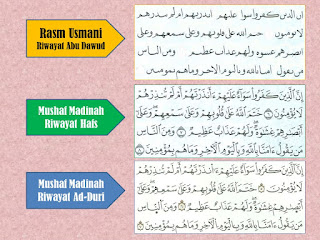 Rasm Usmani
Riwayat Abu Dawud
ان الذين كفروا سوا عليهم اندرتهم ام لم تندرهم
لا يومنون ختم الله على قلوبهم وعلى سمعهم وعلى
ابصرهم غشوة ولهم عذاب عظيم ومن الناس
من يقول امنا بالله وباليوم الاخر وما هم بمومنين
Mushaf Madinah
Riwayat Hafs
إِنَّ ٱلَّذِينَ كَفَرُوا۟ سَوَآءٌ عَلَيْهِمْ ءَأَنذَرْتَهُمْ أَمْ لَمْ تُنذِرْهُمْ
لَا يُؤْمِنُونَ ۝ خَتَمَ ٱللَّهُ عَلَىٰ قُلُوبِهِمْ وَعَلَىٰ سَمْعِهِمْ ۖ وَعَلَىٰٓ
أَبْصَٰرِهِمْ غِشَٰوَةٌ ۖ وَلَهُمْ عَذَابٌ عَظِيمٌ ۝ وَمِنَ ٱلنَّاسِ
مَن يَقُولُ ءَامَنَّا بِٱللَّهِ وَبِٱلْيَوْمِ ٱلْءَاخِرِ وَمَا هُم بِمُؤْمِنِينَ ۝
Mushaf Madinah
Riwayat Ad-Duri
إِنَّ ٱلَّذِينَ كَفَرُوا۟ سَوَآءٌ عَلَيْهِمْ ءَا۬نذَرْتَهُمْ أَمْ لَمْ تُنذِرْهُمْ
لَا يُؤْمِنُونَ ۝ خَتَمَ ٱللَّهُ عَلَىٰ قُلُوبِهِمْ وَعَلَىٰ سَمْعِهِمْ وَعَلَىٰٓ
أَبْصَٰرِهِمْ غِشَٰوَةٌ وَلَهُمْ عَذَابٌ عَظِيمٌ ۝ وَمِنَ ٱلنَّاسِ
مَن يَقُولُ ءَامَنَّا بِٱللَّهِ وَبِٱلْيَوْمِ ٱلْءَاخِرِ وَمَا هُم بِمُؤْمِنِينَ ۝